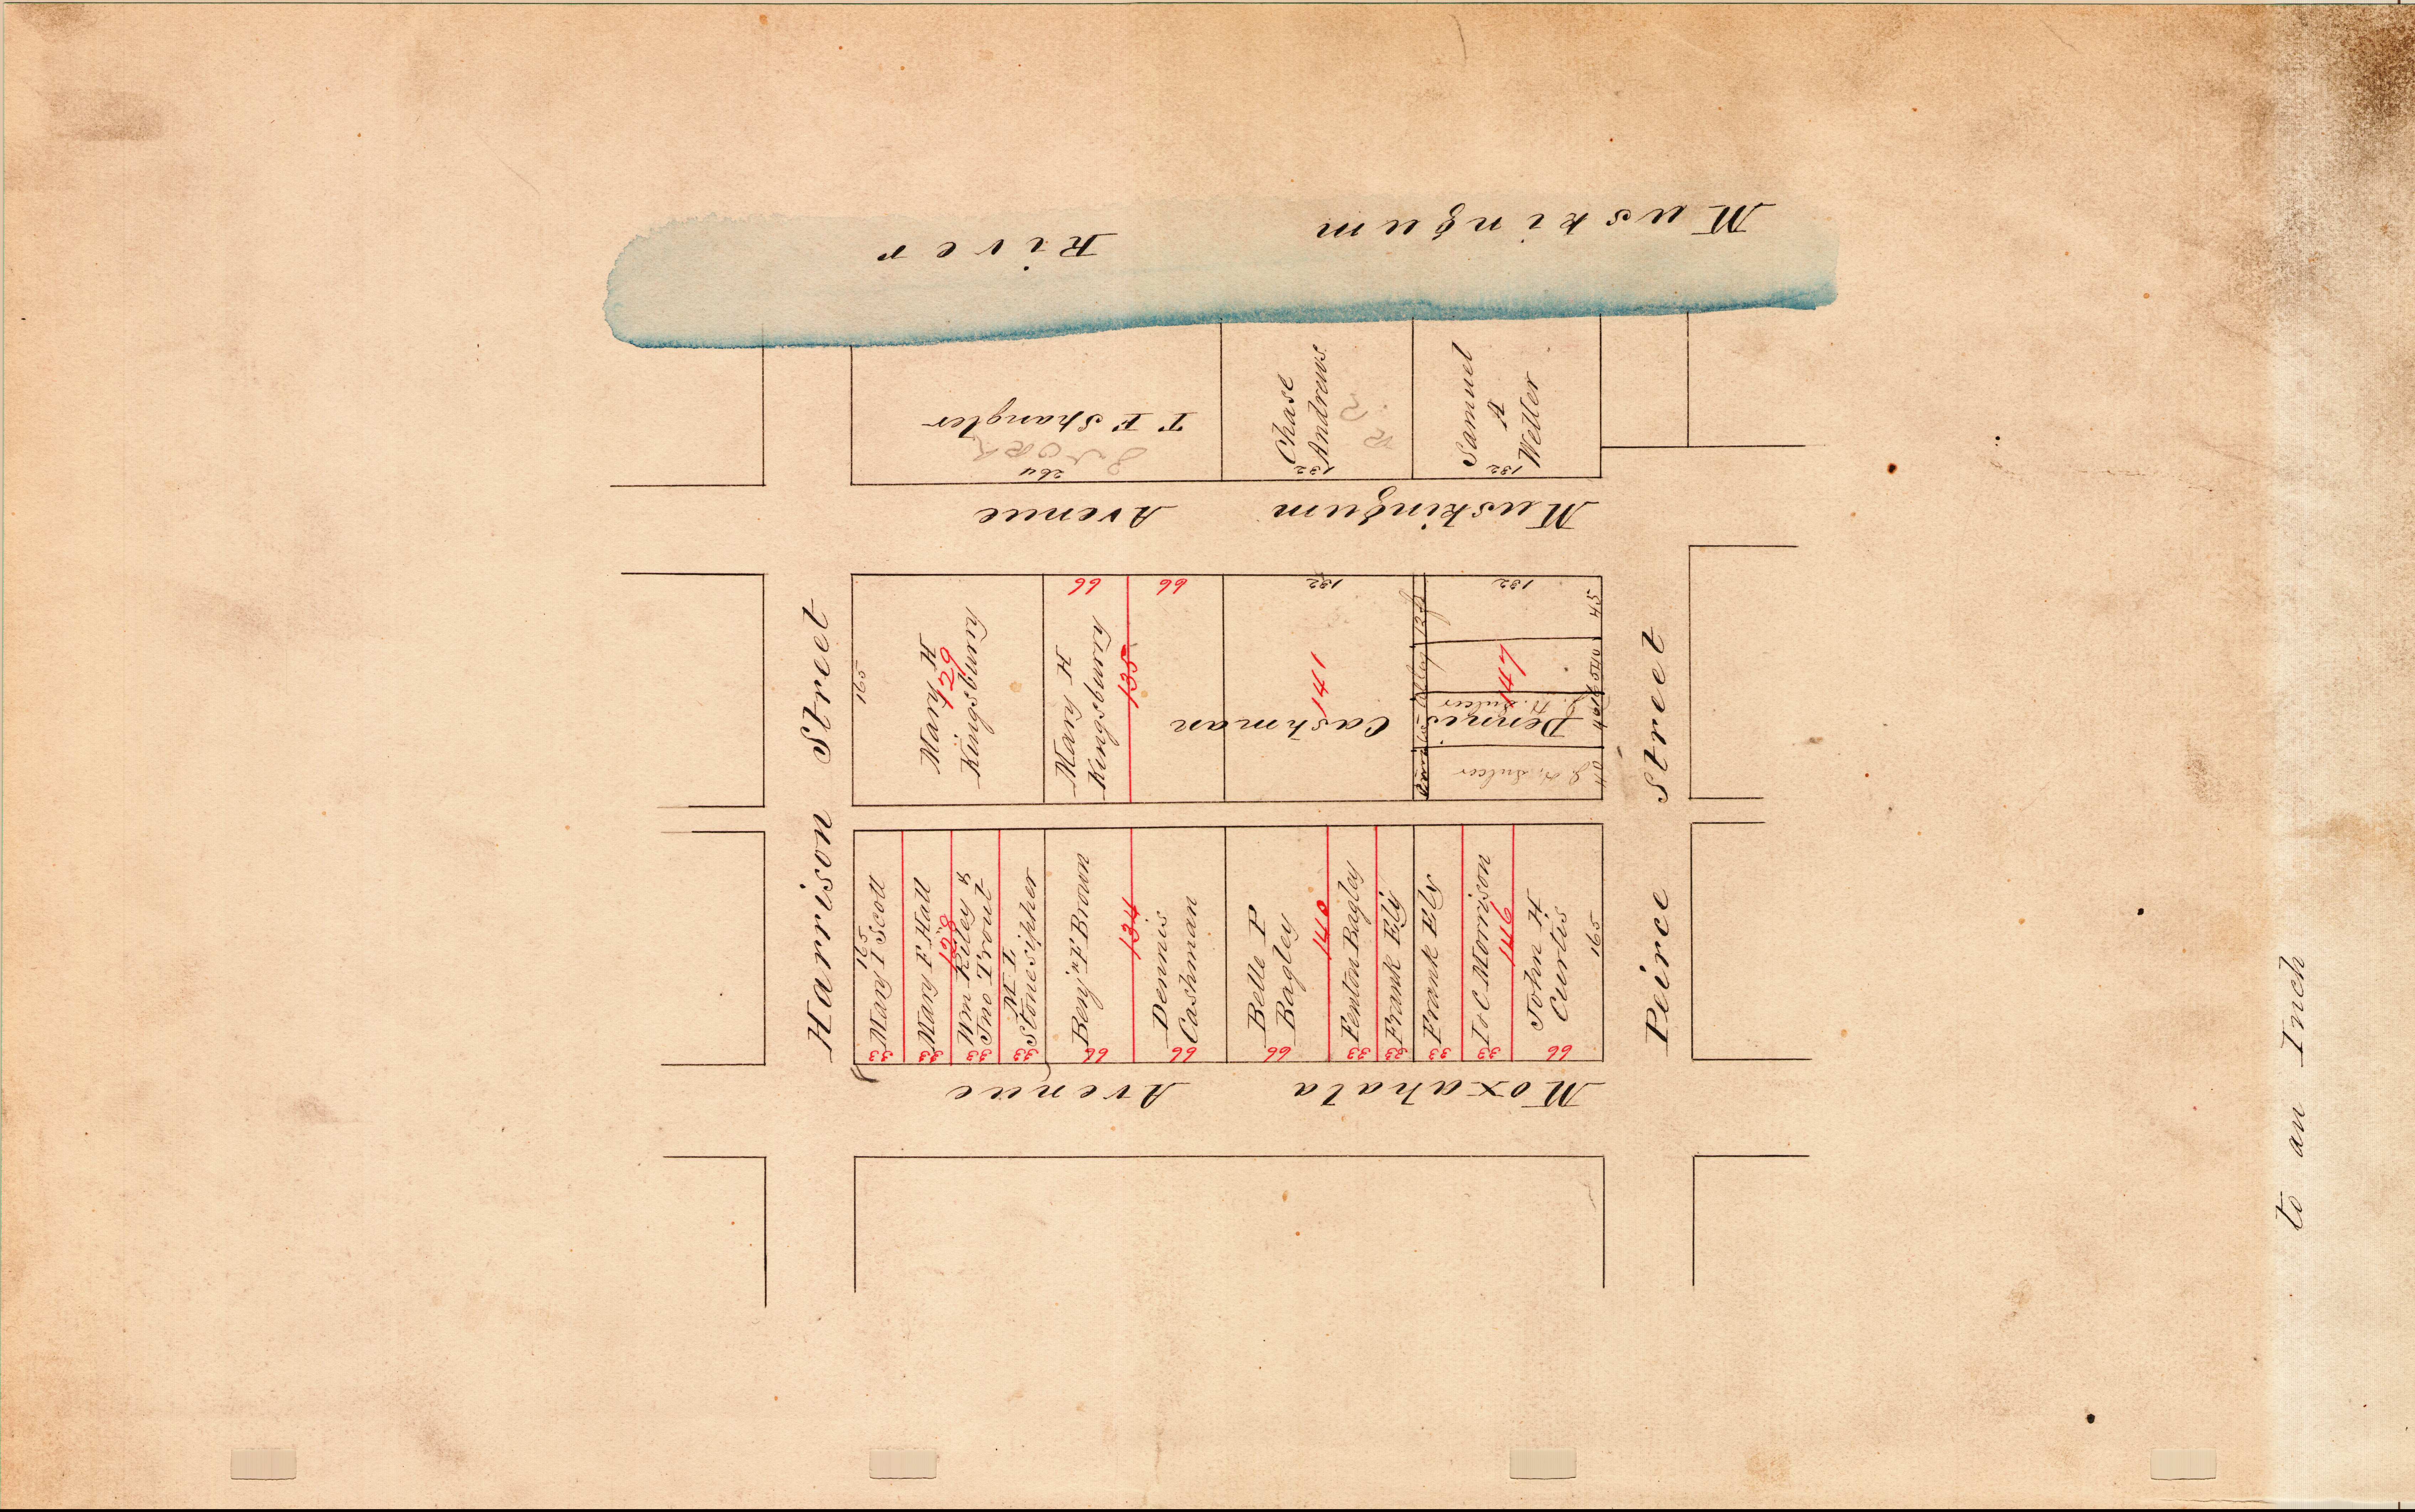 Muskingum River
T F Shangler
264
Chase
Andrews
132
Samuel
A
Weller
132
Muskingum Avenue
Harrison Street
Peirce Street
165
Mary H
129
Kingsburry
66
Mary H
Kingsburry
135
66
132
141
Dennis Cashman
132
147
45
40
J. H. Sulcer
J. H. Sulcer
40
Alley
165
Mary I Scott
33
Mary F Hall
33
128
Wm Riley &
Jno Trout
33
M L
Stonesipher
33
Benjn F Brown
66
134
Dennis
Cashman
66
Belle P
Bagley
66
140
Fenton Bagley
33
Frank Ely
33
Frank Ely
33
I & C Morrison
33
146
John H
Curtis
66
165
Moxahala Avenue
to an Inch